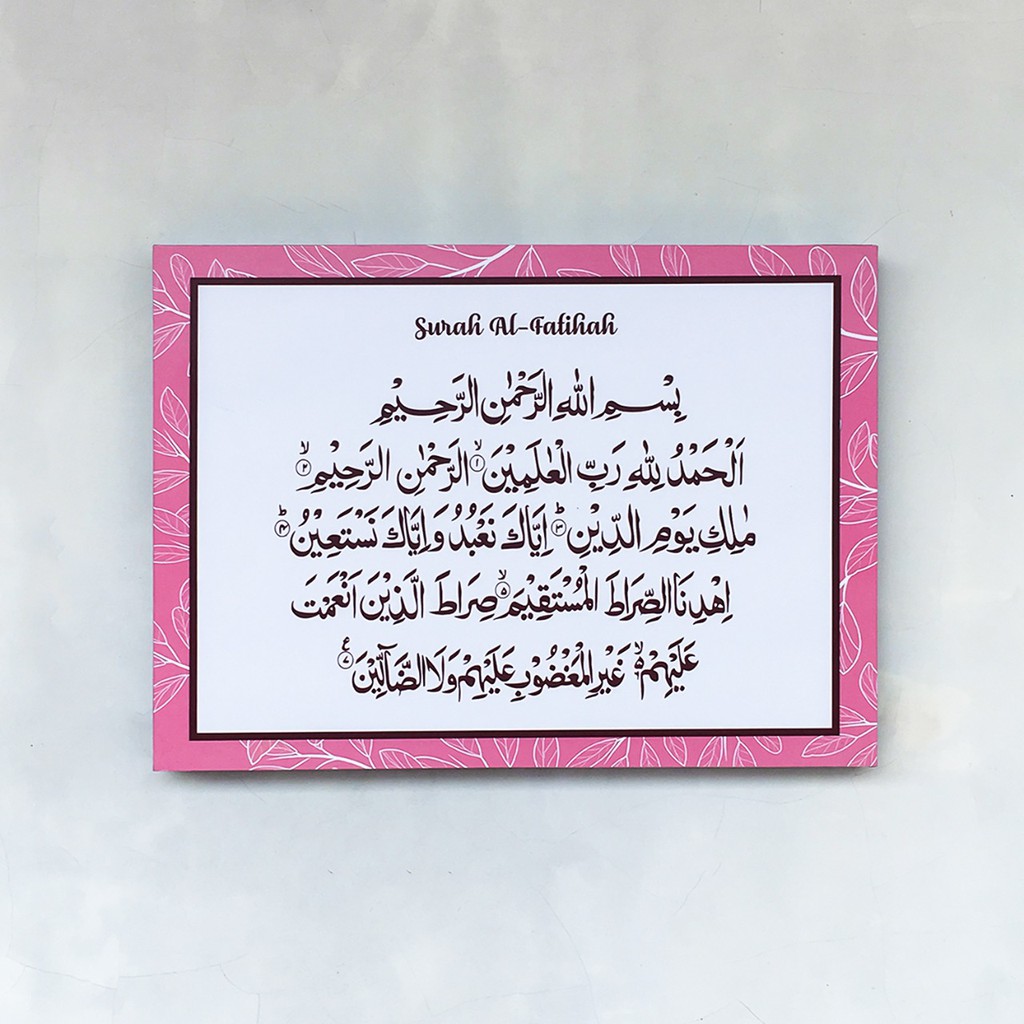 Surah Al-Fatihah
بِسْمِ اللهِ الرَّحْمٰنِ الرَّحِيْمِ
اَلْحَمْدُ لِلّٰهِ رَبِّ الْعٰلَمِيْنَۙ ١ الرَّحْمٰنِ الرَّحِيْمِۙ ٢
مٰلِكِ يَوْمِ الدِّيْنِۗ ٣ اِيَّاكَ نَعْبُدُ وَاِيَّاكَ نَسْتَعِيْنُۗ ٤
اِهْدِنَا الصِّرَاطَ الْمُسْتَقِيْمَۙ ٥ صِرَاطَ الَّذِيْنَ اَنْعَمْتَ
عَلَيْهِمْ ۙ٦ غَيْرِ الْمَغْضُوْبِ عَلَيْهِمْ وَلَا الضَّاۤلِّيْنَ ࣖ ٧